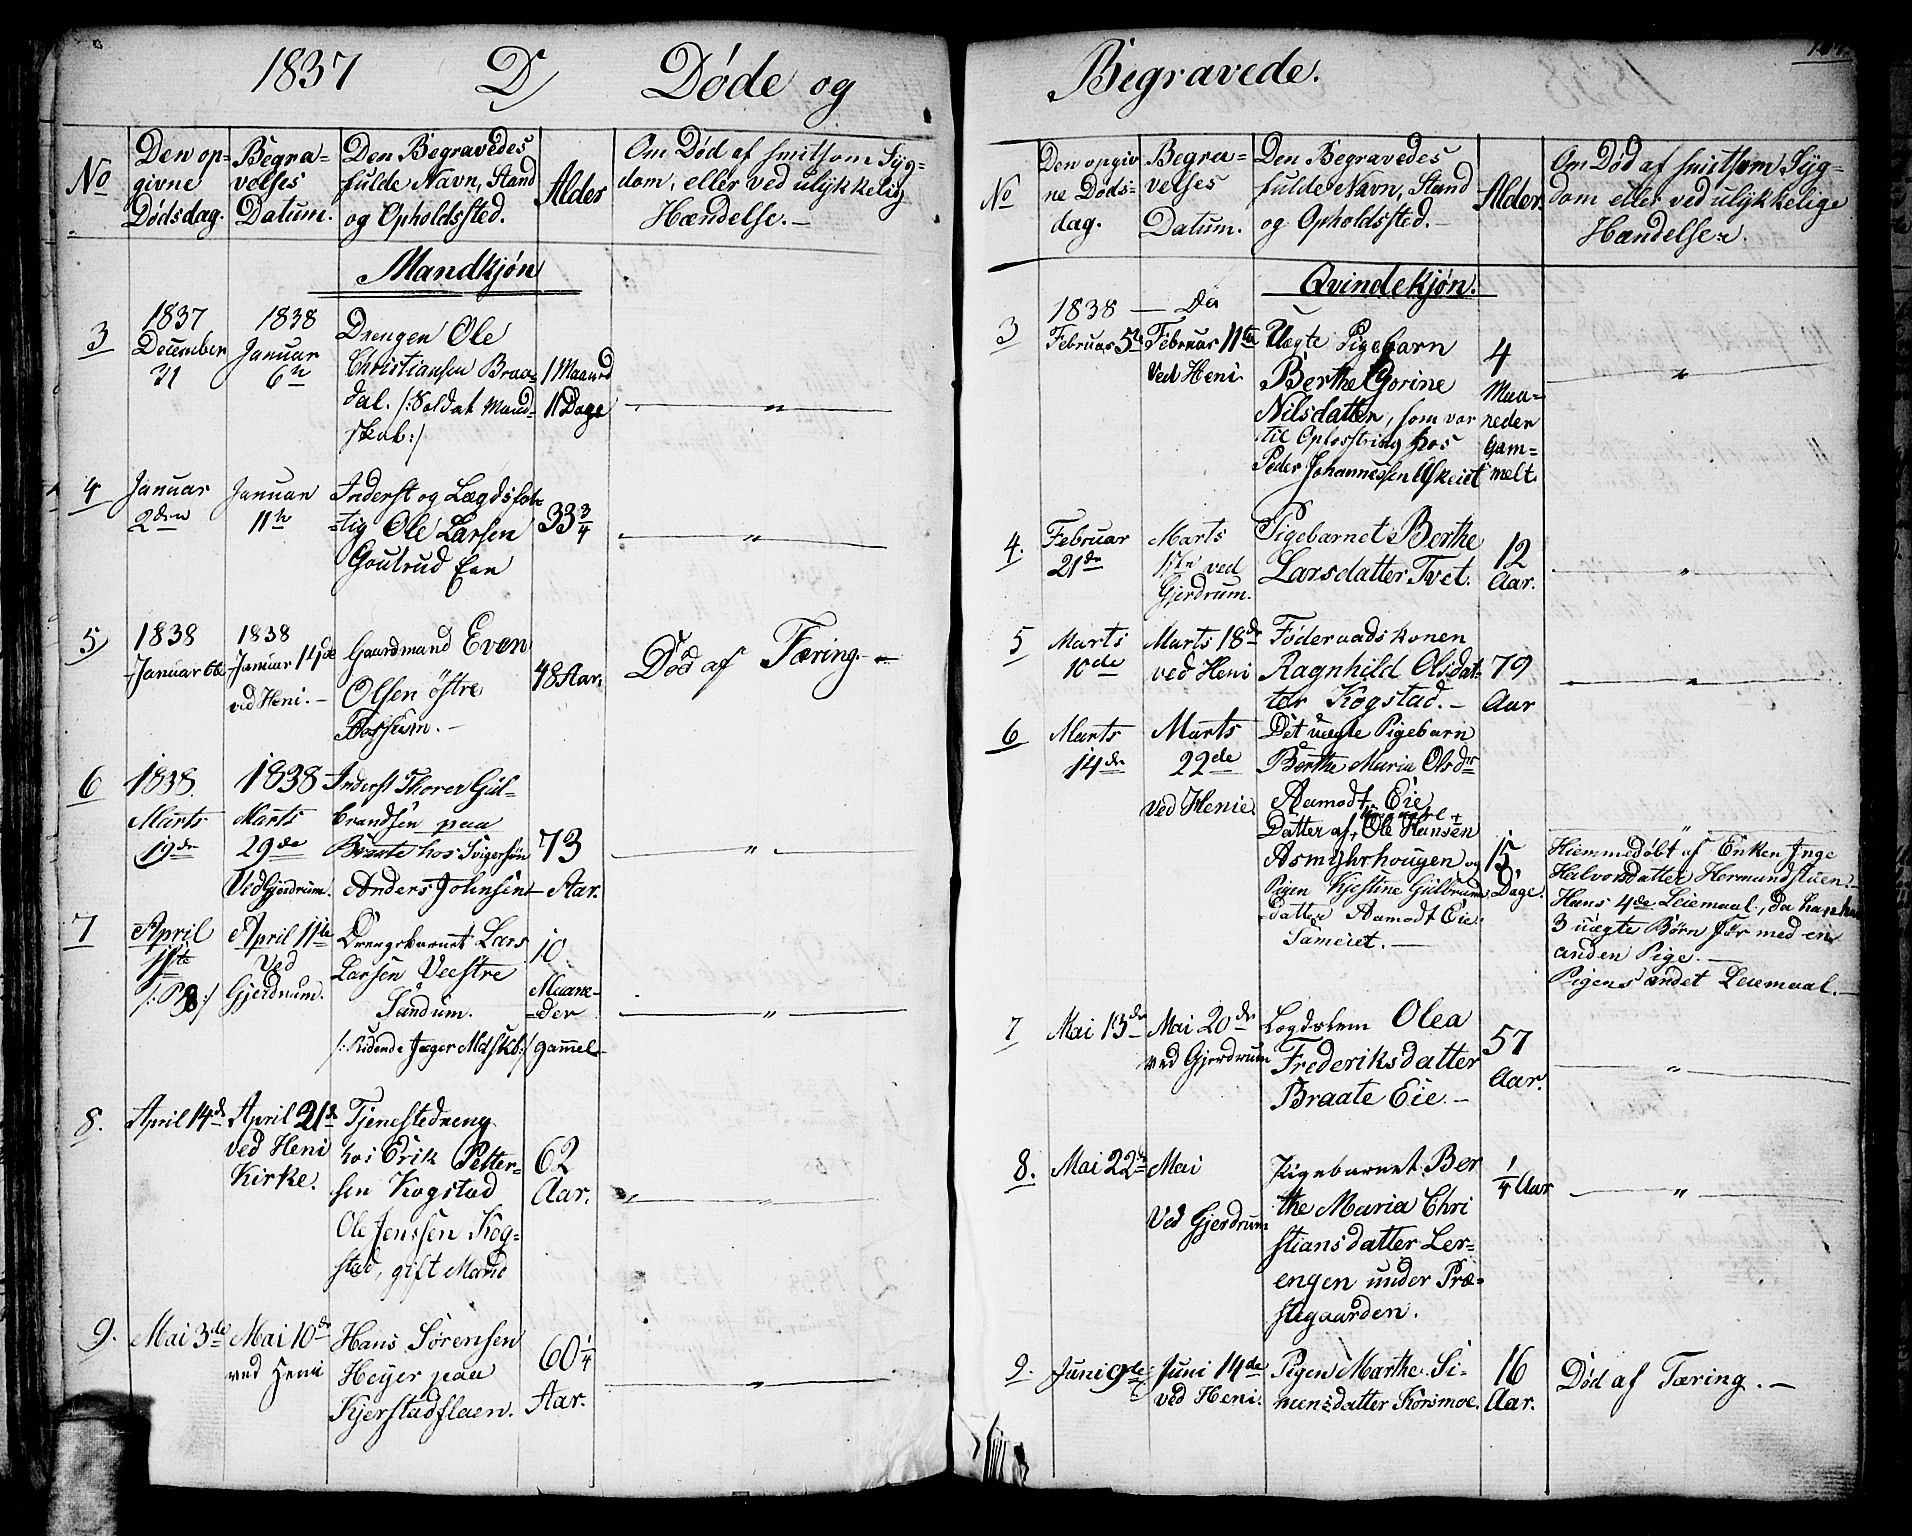 1837 D Døde og
No
Den op-
givne
Dødsdag.
Begra-
velses
Datum.
Den Begravedes
fulde Navn, Stand
og Opholdssted.
Alder
Om Død af smitsom Syg-
dom, eller ved ulykkelig
Hændelse.-
Mandkjøn
3
1837
December
31
1838
Januar
6te
Drengen Ole
Christiansen Braa-
dal. /:Soldat Mand-
skab:/
1 Maaned
11 Dage
"
4
Januar
2den
Januar
11te
Inderst og Lægdsfat-
tig Ole Larsen
Goutrud Eie
33 3/4
"
5
1838
Januar 6te
1838
Januar 14de
ved Heni.-
Gaardmand Even
Olsen østre
Fossum.-
48 Aar.
Død af Tæring.-
6
1838.
Marts
19de
1838
Marts
29de
Ved Gjerdrum.
Inderst Thorer Gul-
brandsen paa
Braate hos Svigersøn
Anders Johnsen
73
Aar.
"
7
April
April 11te
Ved
Gjerdrum.
Drengebarnet Lars
Larsen Veestre
Sandum.
/:Ridende Jæger Mdskb:/
10
Maane-
der
gammel
"
8.
April 14de
April 21de
ved Heni
Kirke.
Tjenestedreng
hos Erik Petter-
sen Kogstad
Ole Jenssen Kog-
stad, gift Mand
62
Aar.
"
9.
Mai 3de
Mai 10de
ved Heni
Hans Sørensen
Heyer paa
Kjerstadfløen.
60 1/4
Aar.
"
Begravede.
No
Den opgiv
ne Døds-
dag.
Begra-
velses
Datum.
Den Begravedes
fulde Navn, Stand
og Opholdssted.-
Alder.
Om Død af smitsom Syg-
dom eller ved ulykkelige
Hændelser.
Qvindekjøn.
3
1838
Februar 5te
Do
Februar 11te
Ved Heni
Uægte Pigebarn
Berthe Gorine
Nilsdatter, som var
til Opfostring hos
Peder Johannessen Askeiet
4
Maa-
neder
gam-
melt
"
4.
Februar
21de
Marts
ved
Gjerdrum.
Pigebarnet Berthe
Larsdatter Tvet.
12
Aar.
"
5
Marts
10de
Marts 18de
ved Heni
Føderaadskonen
Ragnhild Olsdat-
ter Kogstad.-
79
Aar
"
6
Marts
14de
Marts
22de
ved Henie.
Det uægte Pigebarn
Berthe Maria Olsdr
Aamodt Eie
Datter af Ole Hansen
Asmyhrhougen og
Pigen Kjestine Gulbrands
datter Aamodt Eie.
Sameiet.-
15
Dage.
"
Hiemmedøbt af Enken Inge
Halvorsdatter Hermundstuen.-
Hans 4de Leiemaal, da han har
3 uægte Børn før med en
anden Pige.-
Pigens andet Leiemaal.-
7
Mai 13de
Mai 20de
ved Gjerdrum
Lægdslem Olea
Frederiksdatter
Braate Eie.-
57
Aar.
"
8.
Mai 22de
Mai
Ved Gjerdrum
Pigebarnet Ber
the Maria Chri
stiansdatter Ler-
engen under Præ-
stegaarden.
1/4 Aar
"
9.
Juni 9de
Juni 14de
ved Heni.
Pigen Marthe Si-
mensdatter Korsmoe.
16
Aar.
Død af Tæring.-